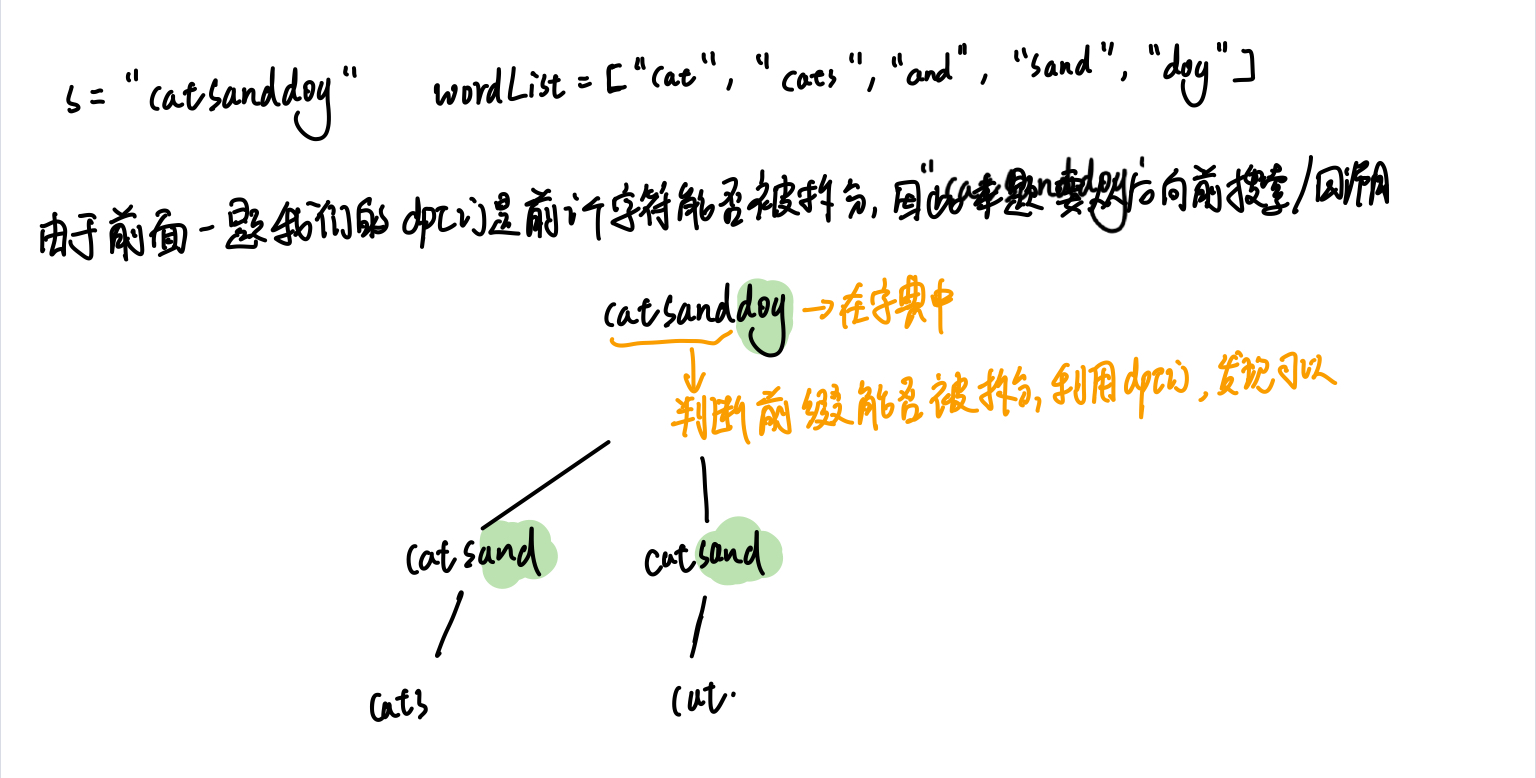 s = "catsanddog" wordList = ["cat", "cats", "and", "sand", "dog"]
由于前面一题我们的dp[i]是前i个字符能否被拆分, 因 本题要 后向前搜索/回溯
catsanddog → 在字典中
判断前缀能否被拆分, 利用dp[i], 发现可以
catsand catsand
cats cat.